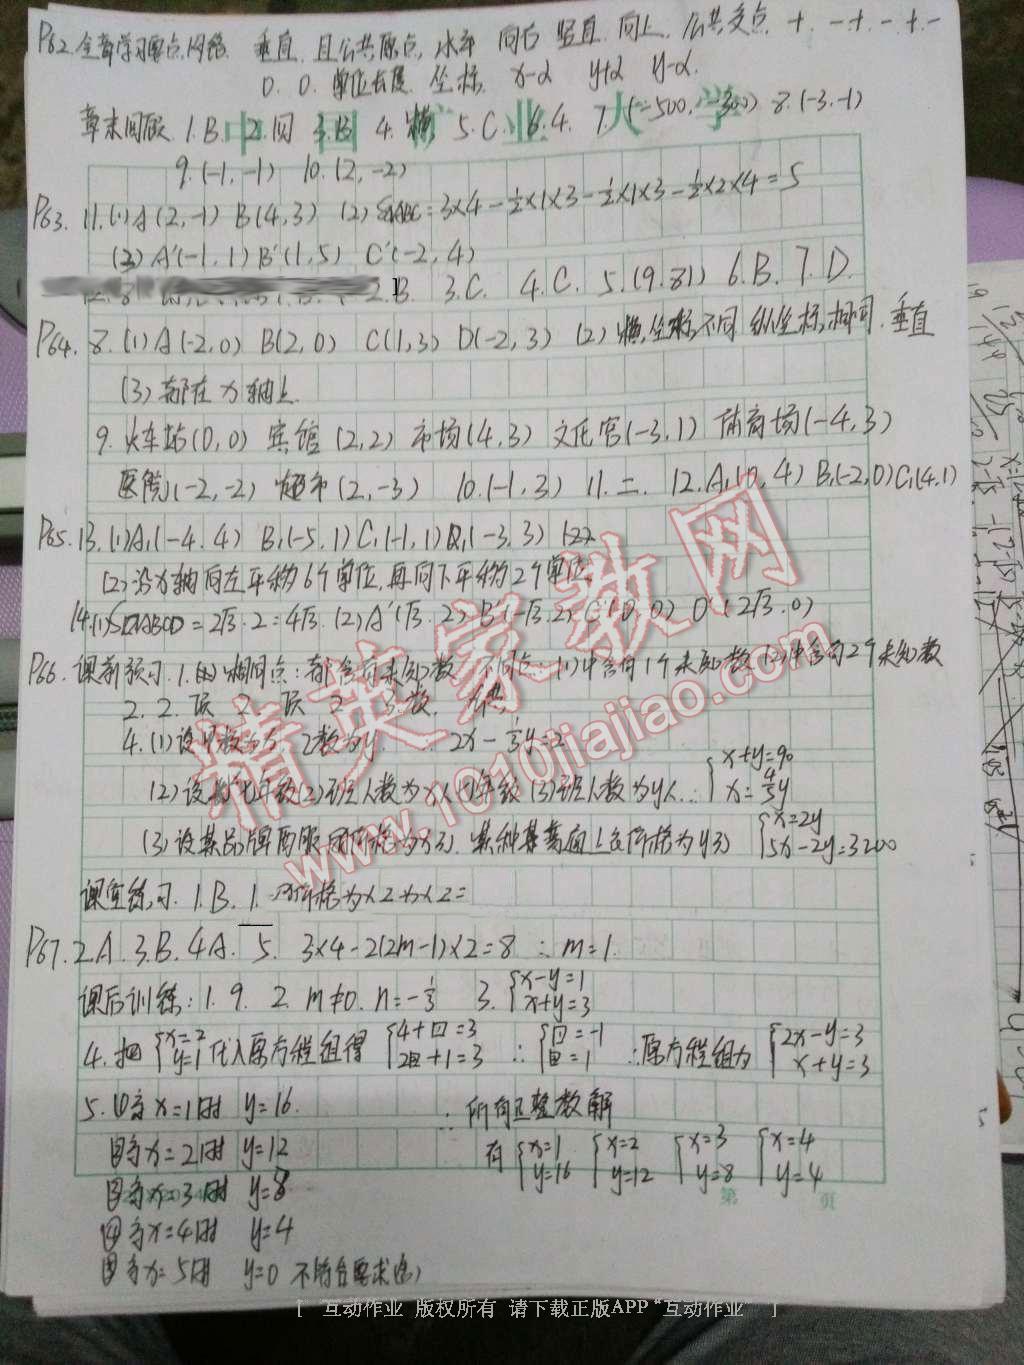 P62 全章学习要点,网络 垂直 且公共原点, 水平 向右 竖直 向上 公共交点 + - + - + -
0. 0. 单位长度 坐标 x-a y+a y-a.
章末回顾 1.B. 2.四 3.B 4. 横 5.C. 6.4. 7.(-500,-300) 8.(-3.-1)
中国矿业大学
9.(-1,-1) 10.(2,-2)
P63. 11.(1)A(2,-1) B(4,3) (2) S△ABC=3×4-½×1×3-½×1×3-½×2×4=5
(3)A'(-1,1)B'(1,5) C'(-2,4)
2.B. 3.C. 4.C. 5.(9.81) 6.B. 7.D.
P64. 8.(1)A(-2,0) B(2,0) C(1,3) D(-2,3) (2)横坐标不同 纵坐标相同. 垂直
(3)都在x轴上
9.火车站(0,0) 宾馆(2,2) 市场(4,3) 文化宫(-3,1) 体育场(-4,3)
医院(-2,-2) 超市(2,-3) 10.(-1,3) 11.二. 12.A₁(0,4) B₁(-2,0)C₁(4.1)
P65. 13.(1)A₁(-4.4) B₁(-5.1)C₁(-1,1)D₁(-3.3)
(2)沿x轴向左平移6个单位,再向下平移2个单位
14.(1)S□ABCD=2√3·2=4√3.(2)A'(√3.2) B'(-√3.2)C'(0,0) D'(2√3.0)
P66. 课前预习.1. 相同点:都含有未知数 不同点:(1)中含有1个未知数(2)中含有2个未知数
2. 2. 一次 2 一次 2
4.(1)设甲数为x, 乙数为y. ∴ 2x-⅓y=2
(2)设七年级(2)班人数为x人,七年级(3)班人数为y人.∴{x+y=90 x=⅘y
(3)设某品牌西服 价格为x元. 某种 价格为y元 {x=2y 5x-2y=3200
课堂练习. 1.B. 1.
P67. 2.A. 3.B. 4.A. 5. 3×4-2(2m-1)×2=8 ∴m=1.
课后训练:1.9. 2. m≠0. n=-⅓ 3.{x-y=1 x+y=3
4.把{x=2 y=1代入原方程组得{4+□=3 2⊞+1=3 ∴{□=-1 ⊞=1 ∴原方程组为{2x-y=3 x+y=3
5.①当x=1时 y=16. ∴所有正整数解
②当x=2时 y=12 有{x=1 y=16 {x=2 y=12 {x=3 y=8 {x=4 y=4
③当x=3时 y=8
第 页
④当x=4时 y=4
⑤当x=5时 y=0 不符合要求(舍)
精英家教网
www.1010jiajiao.com
[ 互动作业 版权所有 请下载正版APP“互动作业” ]